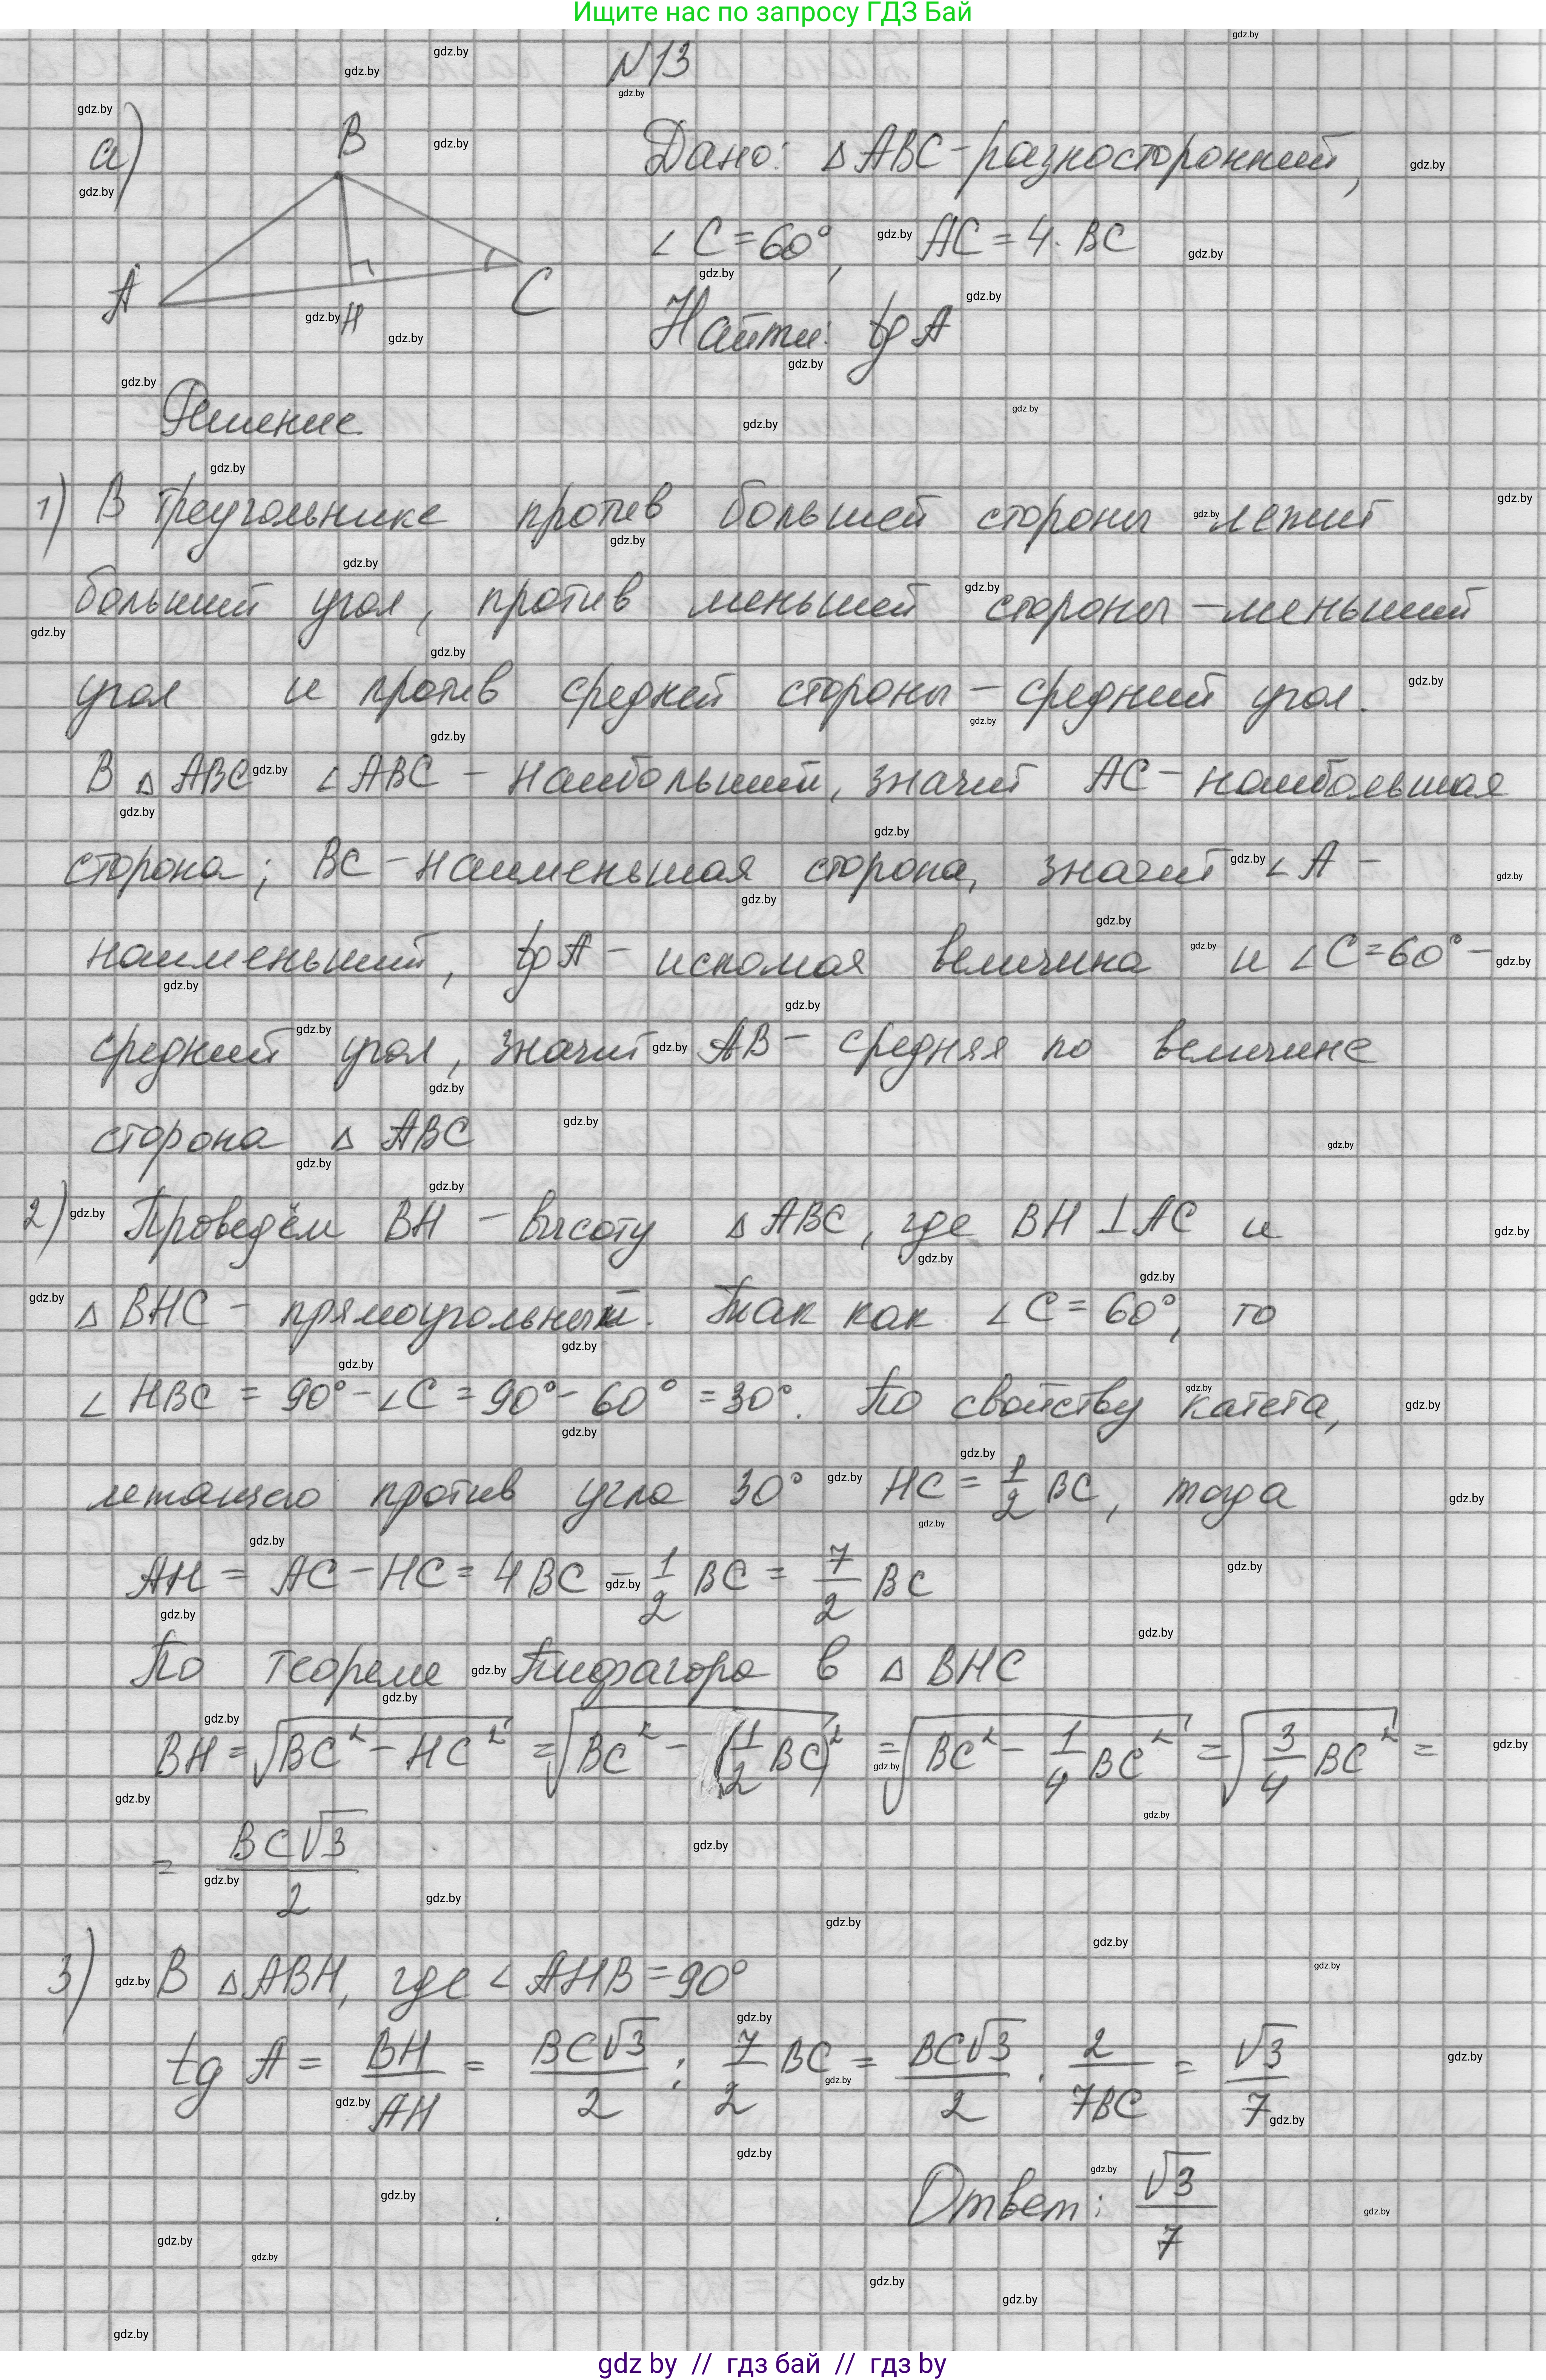 Ищите нас по запросу ГДЗ Бай
N13
а)
B
A
H
C
Дано: ΔABC-разносторонний,
∠C=60°, AC=4·BC
Найти: tg A
Решение
1) В треугольнике против большей стороны лежит
больший угол, против меньшей стороны-меньший
угол и против средней стороны-средний угол.
В ΔABC ∠ABC - наибольший, значит AC-наибольшая
сторона; BC-наименьшая сторона, значит ∠A-
наименьший, tg A - искомая величина и ∠C=60°-
средний угол, значит AB- средняя по величине
сторона ΔABC
2) Проведём BH - высоту ΔABC, где BH⊥AC и
ΔBHC - прямоугольный. Так как ∠C=60°, то
∠HBC = 90°-∠C=90°-60°=30°. По свойству катета,
лежащего против угла 30° HC=1/2 BC, тогда
AH = AC-HC=4BC-1/2 BC=7/2 BC
По теореме Пифагора в ΔBHC
BH=√(BC²-HC²)=√(BC²-(1/2 BC)²)=√(BC²-1/4 BC²)=√(3/4 BC²)=
= BC√3/2
3) В ΔABH, где ∠AHB=90°
tg A = BH/AH = BC√3/2 : 7/2 BC = BC√3/2 · 2/7BC = √3/7
Ответ: √3/7
gdz by // гдз бай // гдз by